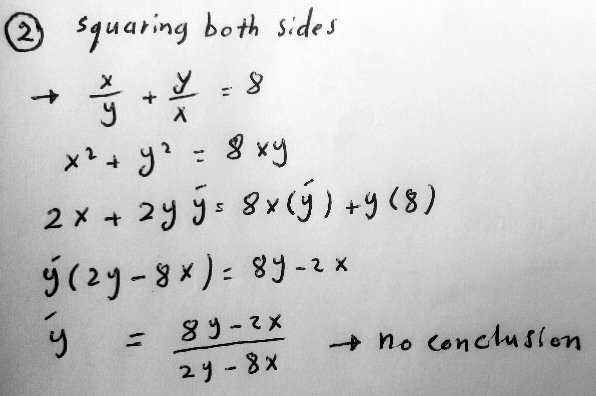 ② squaring both sides
→ x/y + y/x = 8
x² + y² = 8xy
2x + 2y ý = 8x(ý) + y(8)
ý(2y - 8x) = 8y - 2x
ý = (8y - 2x)/(2y - 8x) → no conclusion